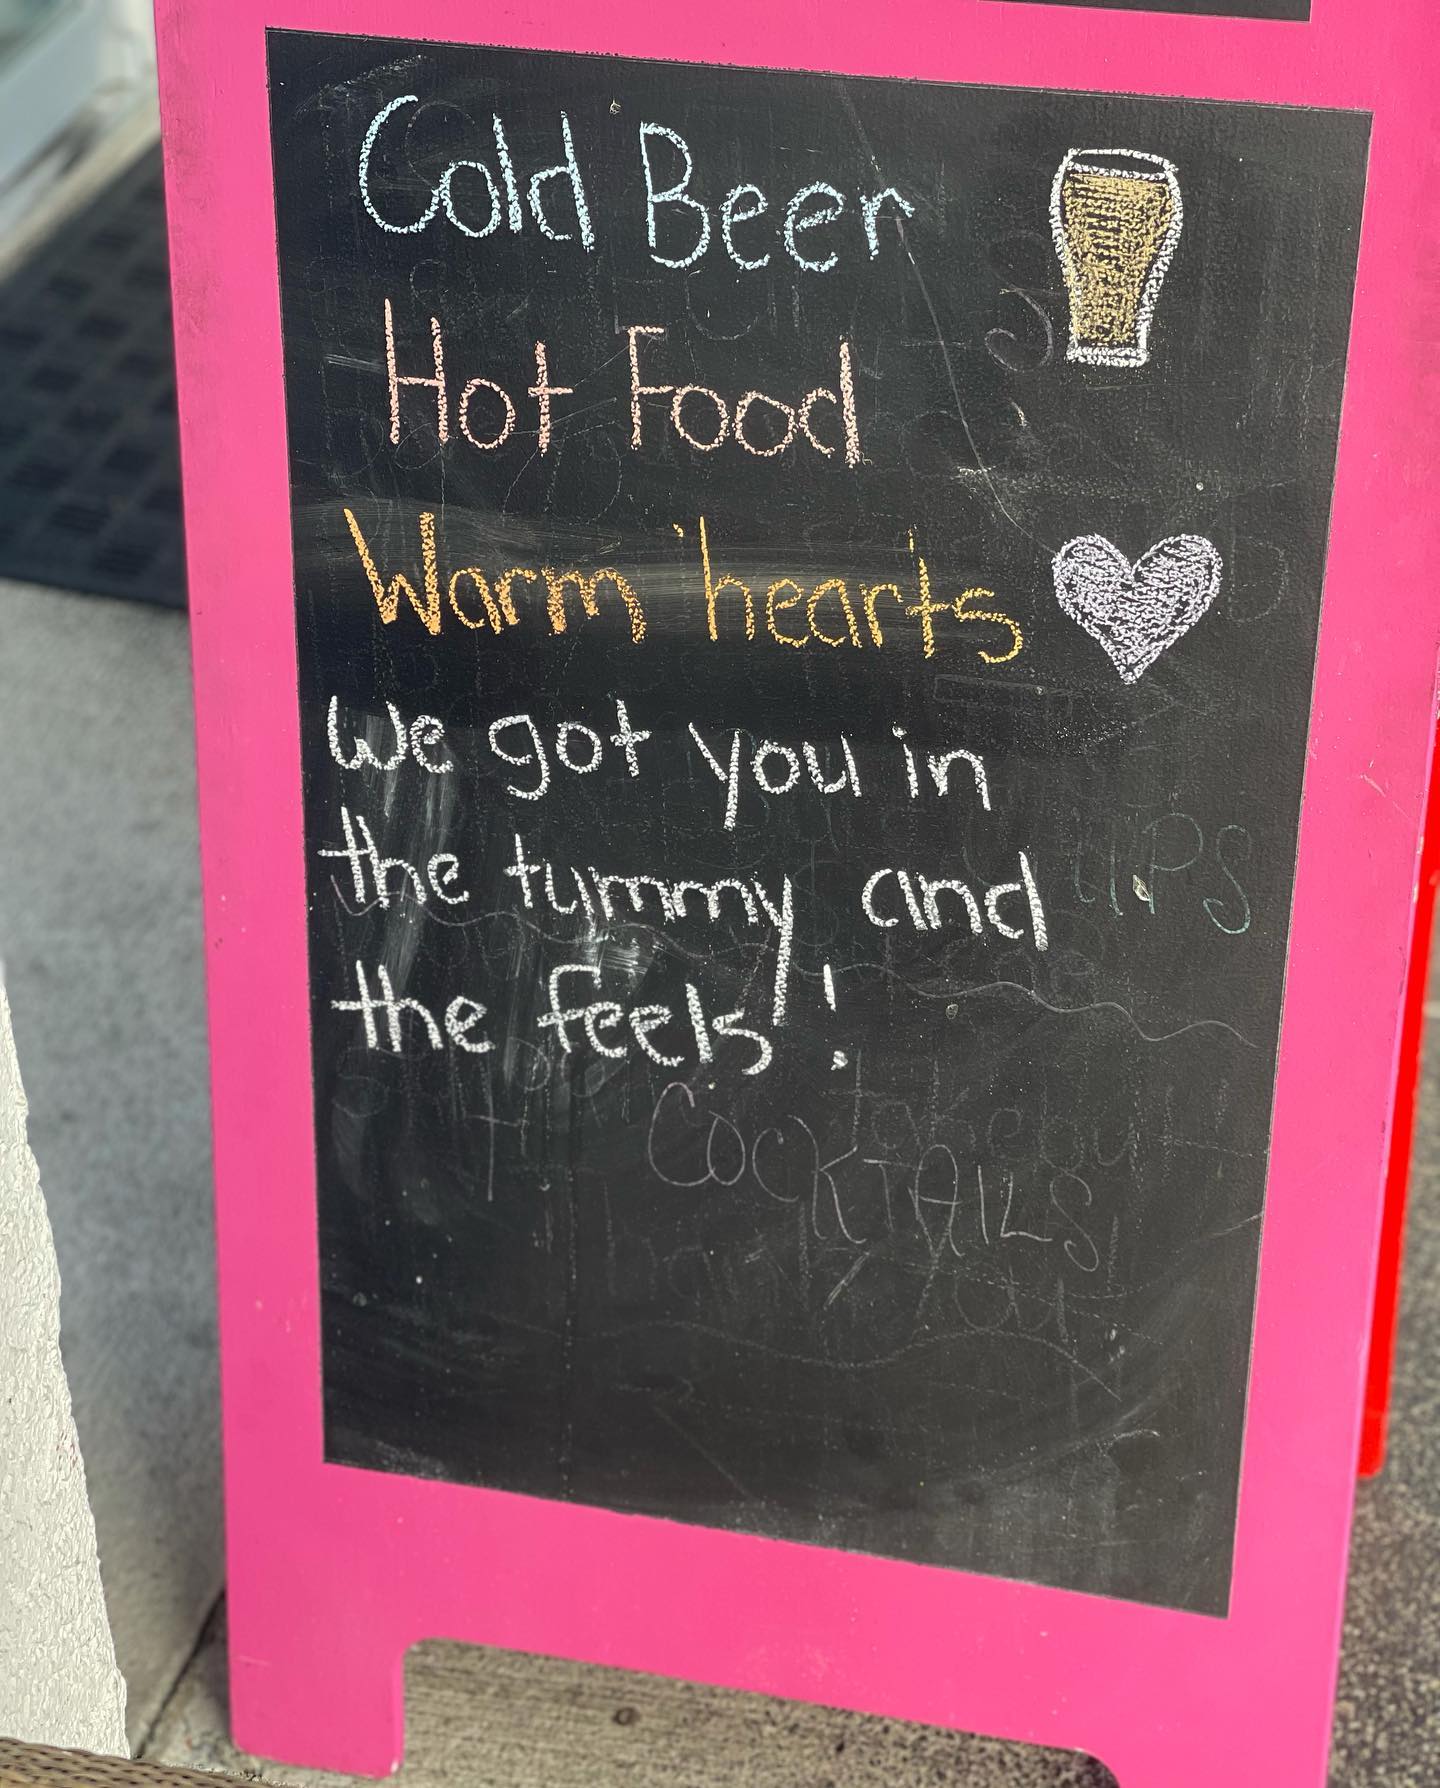 Cold Beer
Hot Food
Warm hearts
We got you in
the tummy and
the feels!
COCKTAILS